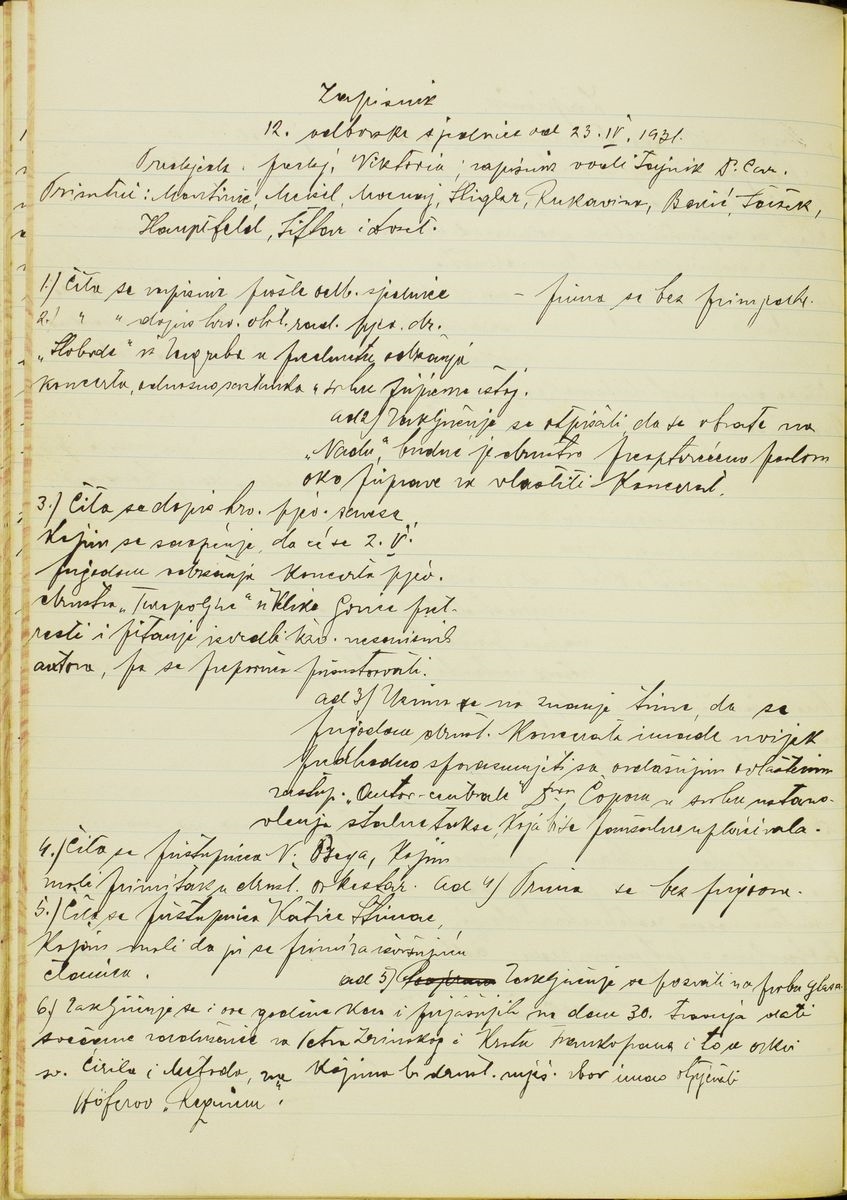 Zapisnik
12. odborske sjednice od 23. IV. 1931.
Predsjeda. predsj. Viktorin; zapisnik vodi tajnik D. Car.
Prisutni: Martinić, Meisl, Mocnaj, Sliglar, Rukavina, Banić,
Hauptfeld, Šiftar i Lvoš.
1.) Čita se zapisnik prošle odb. sjednice
– prima se bez primjedbe.
2.) " " dopis hrv. obrt. rad. pjev. dr.
„Sloboda" iz Zagreba u predmetu održanja
koncerta, odnosno sastanka u svrhu prijema istog.
ad 2) Zaključuje se otpisati da se obrate na
„Nadu", budući je društvo preopterećeno poslom
oko priprave za vlastiti koncerat.
3.) Čita se dopis hrv. pjev. saveza,
kojim se saopćuje, da će se 2. V.
prigodom održanja koncerta pjev.
društva „Turopoljac" u Velike Gorice pret-
resti i pitanje izvedbi hrv. nesavisnih
autora, pa se preporuča prisustvovati.
ad 3) Uzima se na znanje time, da se
prigodom društ. koncerata imade uvijek
predhodno sporazumjeti sa ovdašnjim ovlaštenim
zastup. „Autor-centrale" Čopom u svrhu ustano-
vljenja stalne takse, koja bi se paušalno uplaćivala.
4.) Čita se pristupnica N. Bega, kojim
moli primitak u društ. orkestar. ad 4) Prima se bez prigovora.
5.) Čita se pristupnica Katice Stimac,
kojom moli da ju se prima za izvršujuću
članicu.
ad 5) Zaključuje se pozvati na probu glasa
6.) Zaključuje se i ove godine kao i prijašnjih na dane 30. travnja dati
svečane zadušnice za Petra Zrinskog i Krstu Frankopana i to u crkvi
sv. Ćirila i Metoda, na kojima bi društ. mješ. zbor imao otpjevati
Höferov „Requiem".